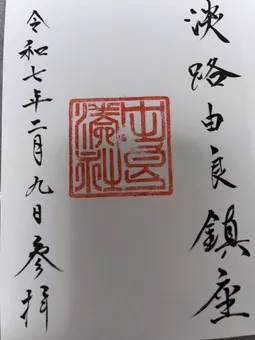 淡路由良鎮座
由良
湊社
令和七年二月九日参拝